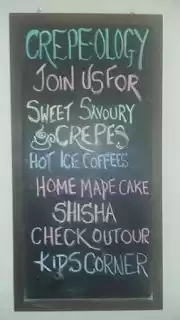 CREPE-OLOGY
JOIN US FOR
SWEET SAVOURY
CREPES
HOT ICE COFFEES
HOME MADE CAKE
SHISHA
CHECK OUT OUR
KIDS CORNER